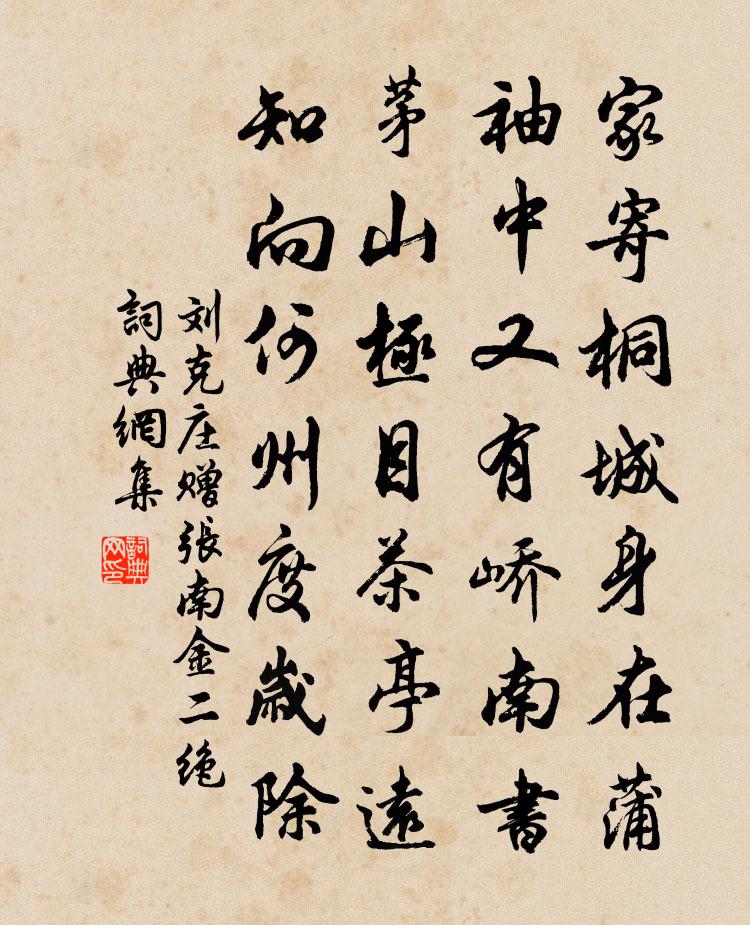 家寄桐城身在蒲
袖中又有峤南書
茅山極目茶亭遠
知向何州度歲除
刘克庄赠張南金二绝
詞典網集
詞典網印